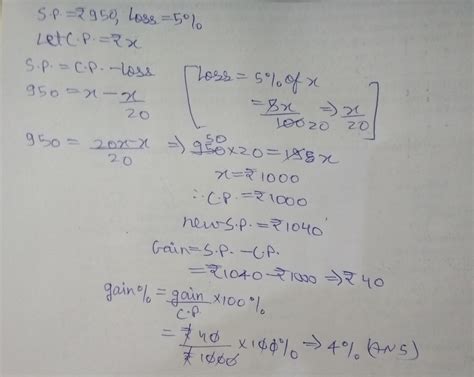 S.P. = ₹950, Loss = 5%
Let C.P. = ₹x
S.P. = C.P. - Loss
[Loss = 5% of x
= 5x/100 20 ⇒ x/20]
950 = x - x/20
950 = 20x-x/20 ⇒ 950 50 × 20 = 19x
x = ₹1000
∴ C.P. = ₹1000
new S.P. = ₹1040
Gain = S.P. - C.P.
= ₹1040 - ₹1000 ⇒ ₹40
gain% = gain/C.P. × 100%
= ₹40/₹1000 × 100% ⇒ 4% (ANS)